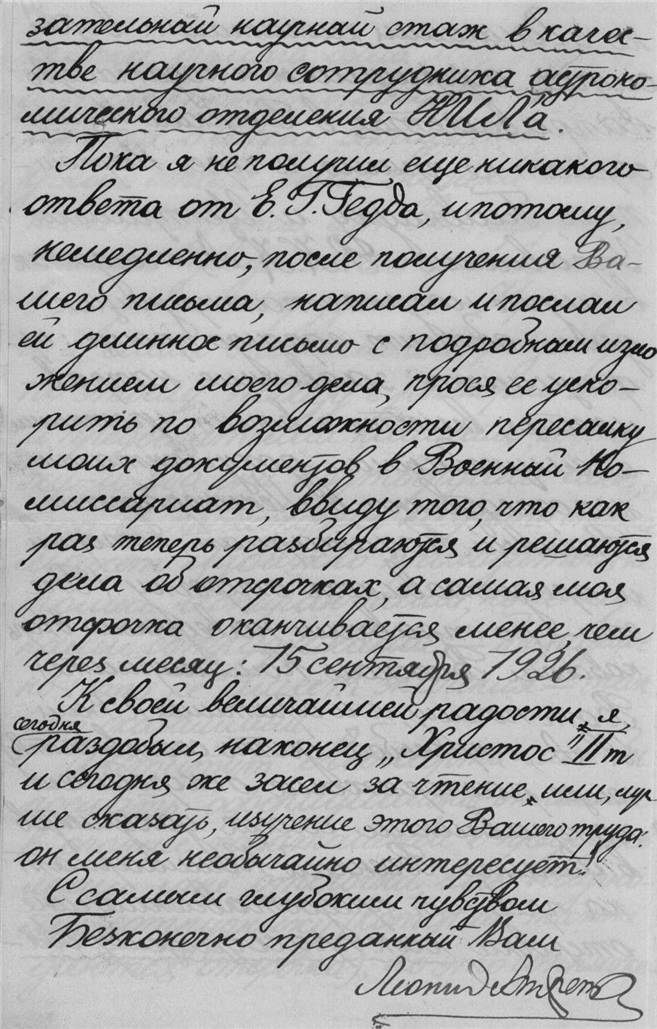 зательный научный стаж в качес-
тве научного сотрудника астроно-
мического отделения НИЛ'а.
Пока я не получил еще никакого
ответа от Е. Г. Гедда, и потому,
немедленно, после получения Ва-
шего письма, написал и послал
ей длинное письмо с подробным изло
жением моего дела, прося ее уско-
рить по возможности пересылку
моих документов в Военный Ко-
миссариат, ввиду того, что как
раз теперь разбираются и решаются
дела об отсрочках, а самая моя
отсрочка оканчивается менее, чем
через месяц: 15 сентября 1926.
К своей величайшей радости, я
сегодня
раздобыл, наконец, „Христос" II т
и сегодня же засел за чтение, или, луч-
ше сказать, изучение этого Вашего труда:
он меня необычайно интересует.
С самым глубоким чувством
Безконечно преданный Вам
Леонид